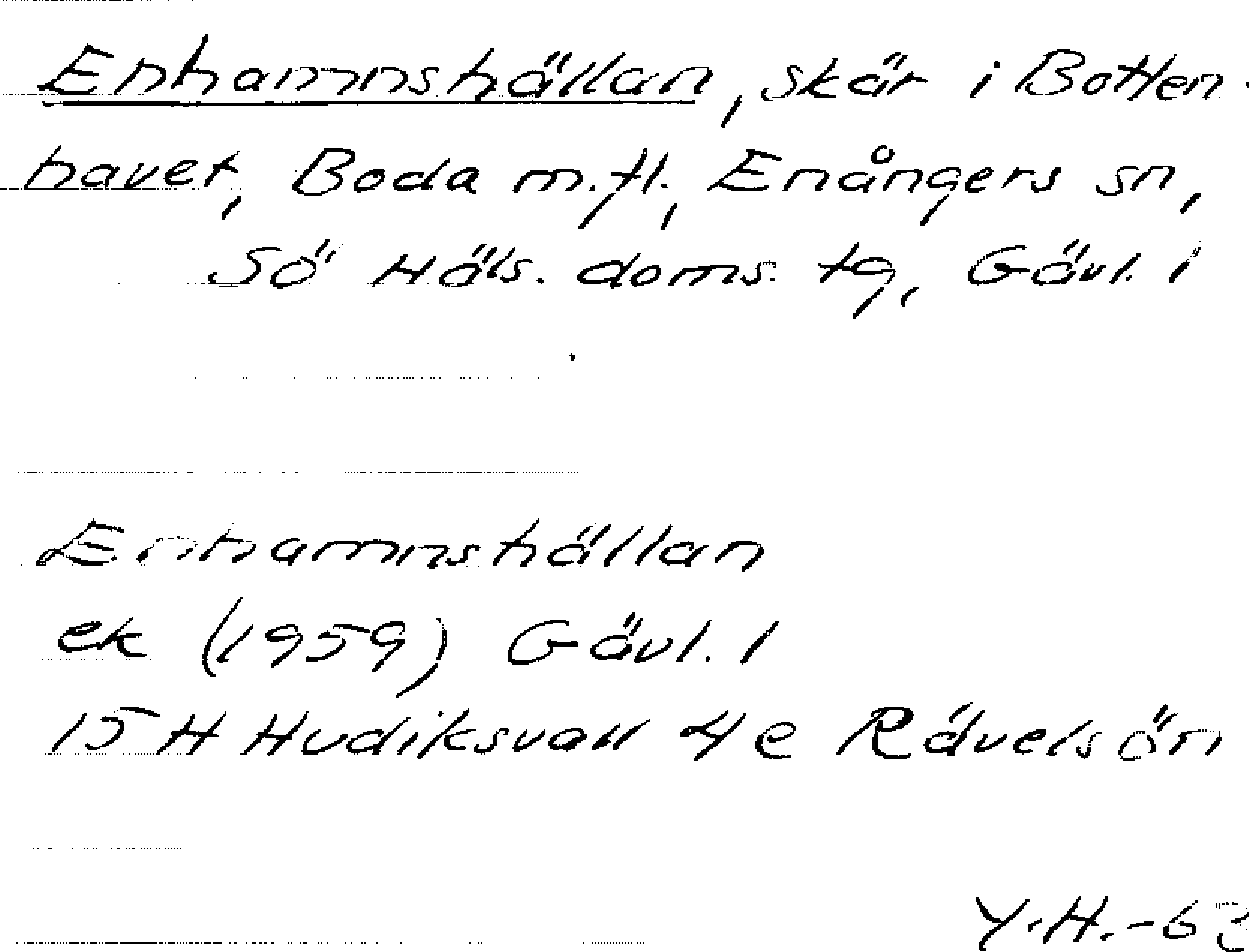 Enhamnshällan, skär i Botten-
havet, Boda m.fl., Enångers sn,
Sö Häls. doms. tg, Gävl. l
Enhamnshällan
ek (1959) Gävl. l
15 H Hudiksvall 4 e Rävelsön
Y.H.-63